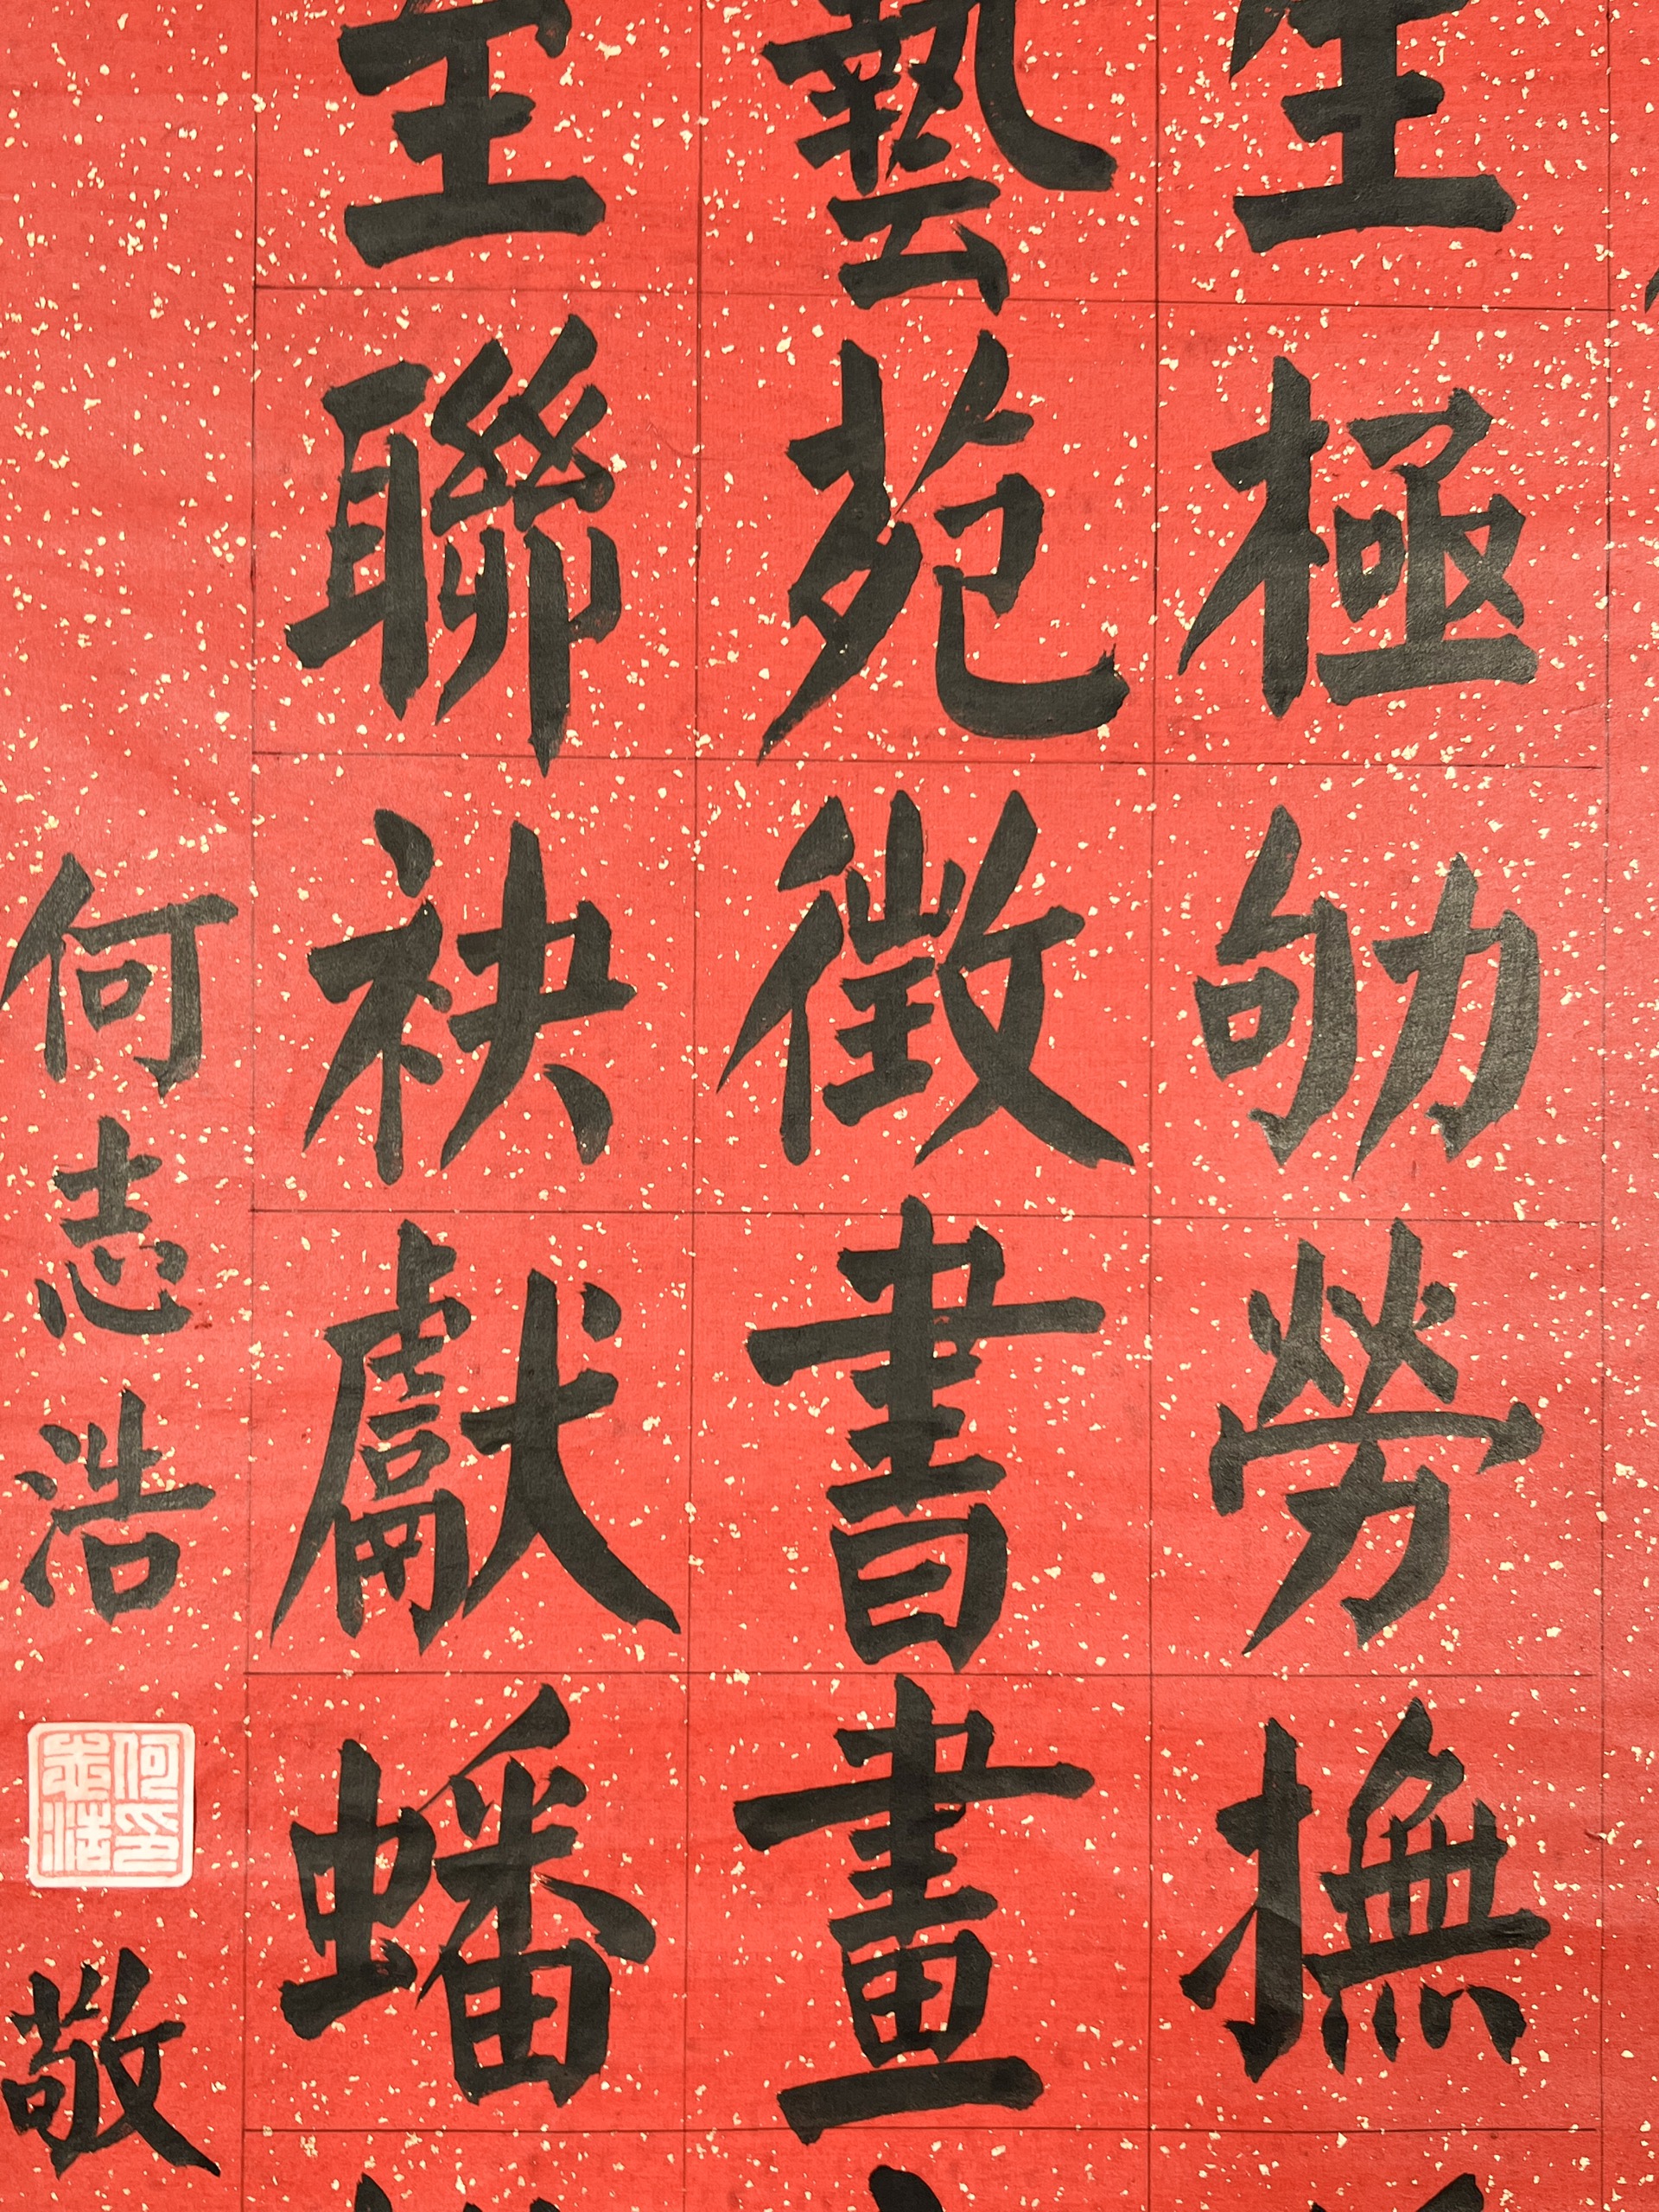 生極劬勞撫
藝苑徵書畫
聯袂獻蟠
何志浩
何志浩印
敬